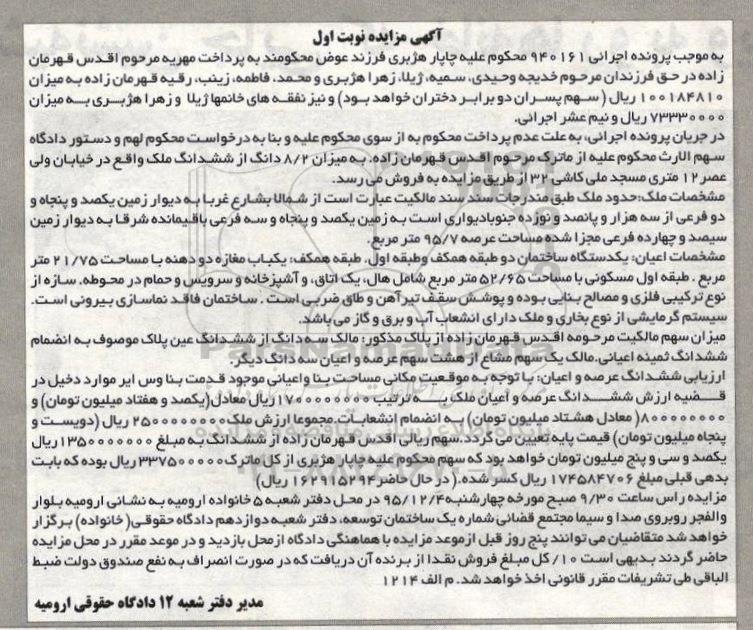 آگهی مزایده نوبت اول
به موجب پرونده اجرائی ۹۴۰۱۶۱ محکوم علیه چاپار هژبری فرزند عوض محکومند به پرداخت مهریه مرحوم اقدس قهرمان
زاده در حق فرزندان مرحوم خدیجه وحیدی، سمیه، ژیلا، زهرا هژبری و محمد، فاطمه، زینب، رقیه قهرمان زاده به میزان
۱۰۰۱۸۴۸۱۰ ریال (سهم پسران دو برابر دختران خواهد بود) و نیز نفقه های خانمها ژیلا و زهرا هژبری به میزان
۷۳۳۳۰۰۰۰ ریال و نیم عشر اجرائی.
در جریان پرونده اجرائی، به علت عدم پرداخت محکوم به از سوی محکوم علیه و بنا به درخواست محکوم لهم و دستور دادگاه
سهم الارث محکوم علیه از ماترک مرحوم اقدس قهرمان زاده، به میزان ۸/۲ دانگ از ششدانگ ملک واقع در خیابان ولی
عصر ۱۲ متری مسجد ملی کاشی ۳۲ از طریق مزایده به فروش می رسد.
مشخصات ملک:حدود ملک طبق مندرجات سند سند مالکیت عبارت است از شمالا بشارع غربا به دیوار زمین یکصد و پنجاه و
دو فرعی از سه هزار و پانصد و نوزده جنوبادیواری است به زمین یکصد و پنجاه و سه فرعی باقیمانده شرقا به دیوار زمین
سیصد و چهارده فرعی مجزا شده مساحت عرصه ۹۵/۷ متر مربع.
مشخصات اعیان: یکدستگاه ساختمان دو طبقه همکف وطبقه اول. طبقه همکف: یکباب مغازه دو دهنه با مساحت ۲۱/۷۵ متر
مربع . طبقه اول مسکونی با مساحت ۵۲/۶۵ متر مربع شامل هال، یک اتاق، و آشپزخانه و سرویس و حمام در محوطه. سازه از
نوع ترکیبی فلزی و مصالح بنایی بوده و پوشش سقف تیرآهن و طاق ضربی است . ساختمان فاقد نماسازی بیرونی است.
سیستم گرمایشی از نوع بخاری و ملک دارای انشعاب آب و برق و گاز می باشد.
میزان سهم مالکیت مرحومه اقدس قهرمان زاده از پلاک مذکور: مالک سه دانگ از ششدانگ عین پلاک موصوف به انضمام
ششدانگ ثمینه اعیانی.مالک یک سهم مشاع از هشت سهم عرصه و اعیان سه دانگ دیگر.
ارزیابی ششدانگ عرصه و اعیان: با توجه به موقعیت مکانی مساحت بنا و اعیانی موجود قدمت بنا وس ایر موارد دخیل در
قضیه ارزش ششدانگ عرصه و اعیان ملک به ترتیب ۱۷۰۰۰۰۰۰۰۰ ریال معادل(یکصد و هفتاد میلیون تومان) و
۸۰۰۰۰۰۰۰۰( معادل هشتاد میلیون تومان) به انضمام انشعابات مجموعا ارزش ملک ۲۵۰۰۰۰۰۰۰۰ ریال (دویست و
پنجاه میلیون تومان) قیمت پایه تعیین می گردد.سهم ریالی اقدس قهرمان زاده از ششدانگ به مبلغ ۱۳۵۰۰۰۰۰۰۰ریال
یکصد و سی و پنج میلیون تومان خواهد بود که سهم محکوم علیه چاپار هژبری از کل ماترک ۳۳۷۵۰۰۰۰۰ ریال بوده که بابت
بدهی قبلی مبلغ ۱۷۴۵۸۴۷۰۶ ریال کسر شده.( در حال حاضر ۱۶۲۹۱۵۲۹۴ ریال)
مزایده راس ساعت ۹/۳۰ صبح مورخه چهارشنبه ۹۵/۱۲/۴ در محل دفتر شعبه ۵ خانواده ارومیه به نشانی ارومیه بلوار
والفجر روبروی صدا و سیما مجتمع قضائی شماره یک ساختمان توسعه، دفتر شعبه دوازدهم دادگاه حقوقی( خانواده) برگزار
خواهد شد متقاضیان می توانند پنج روز قبل از موعد مزایده با هماهنگی دادگاه از محل بازدید و در موعد مقرر در محل مزایده
حاضر گردند بدیهی است ۱۰/ کل مبلغ فروش نقدا از برنده آن دریافت که در صورت انصراف به نفع صندوق دولت ضبط
الباقی طی تشریفات مقرر قانونی اخذ خواهد شد. م الف ۱۲۱۴
مدیر دفتر شعبه ۱۲ دادگاه حقوقی ارومیه